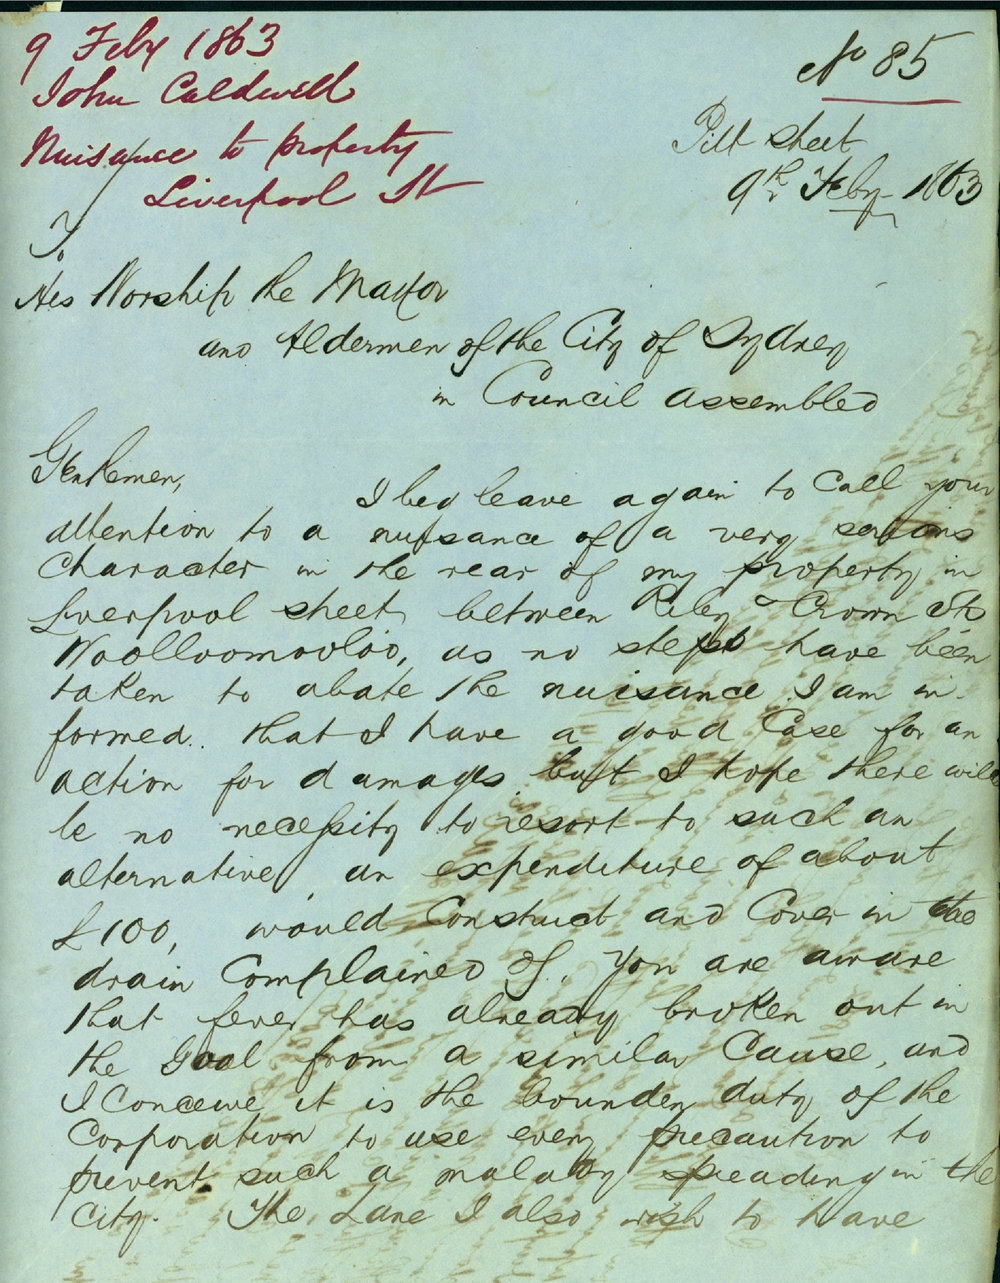 9 Feby 1863
John Caldwell
Nuisance to property
Liverpool St
No 85
Pitt street
9th Feby 1863
To
His Worship the Mayor
and Aldermen of the City of Sydney
in Council Assembled
Gentlemen,
I beg leave again to call your
attention to a nuisance of a very serious
Character in the rear of my property in
Liverpool street, between Riley & Crown Sts
Woolloomooloo, as no steps have been
taken to abate the nuisance I am in
formed.. that I have a good Case for an
action for damages, but I hope there will
be no necessity to resort to such an
alternative, an expenditure of about
£100, would Construct and Cover in the
drain Complained of. You are aware
that fever has already broken out in
the Goal from a similar Cause, and
I Conceive it is the bounden duty of the
Corporation to use every precaution to
prevent such a malady spreading in the
City. The Lane I also wish to have